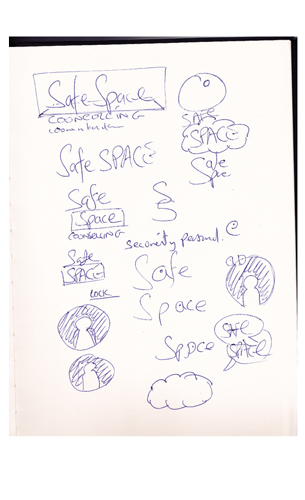 Safe Space
COUNSELLING
SAFE
SPACE
Safe
Space
Safe SPACE
Safe
Space
COUNSELLING
S
S
security personal.
Safe
SPACE
LOCK
Safe
Space
Space
SAFE
SPACE